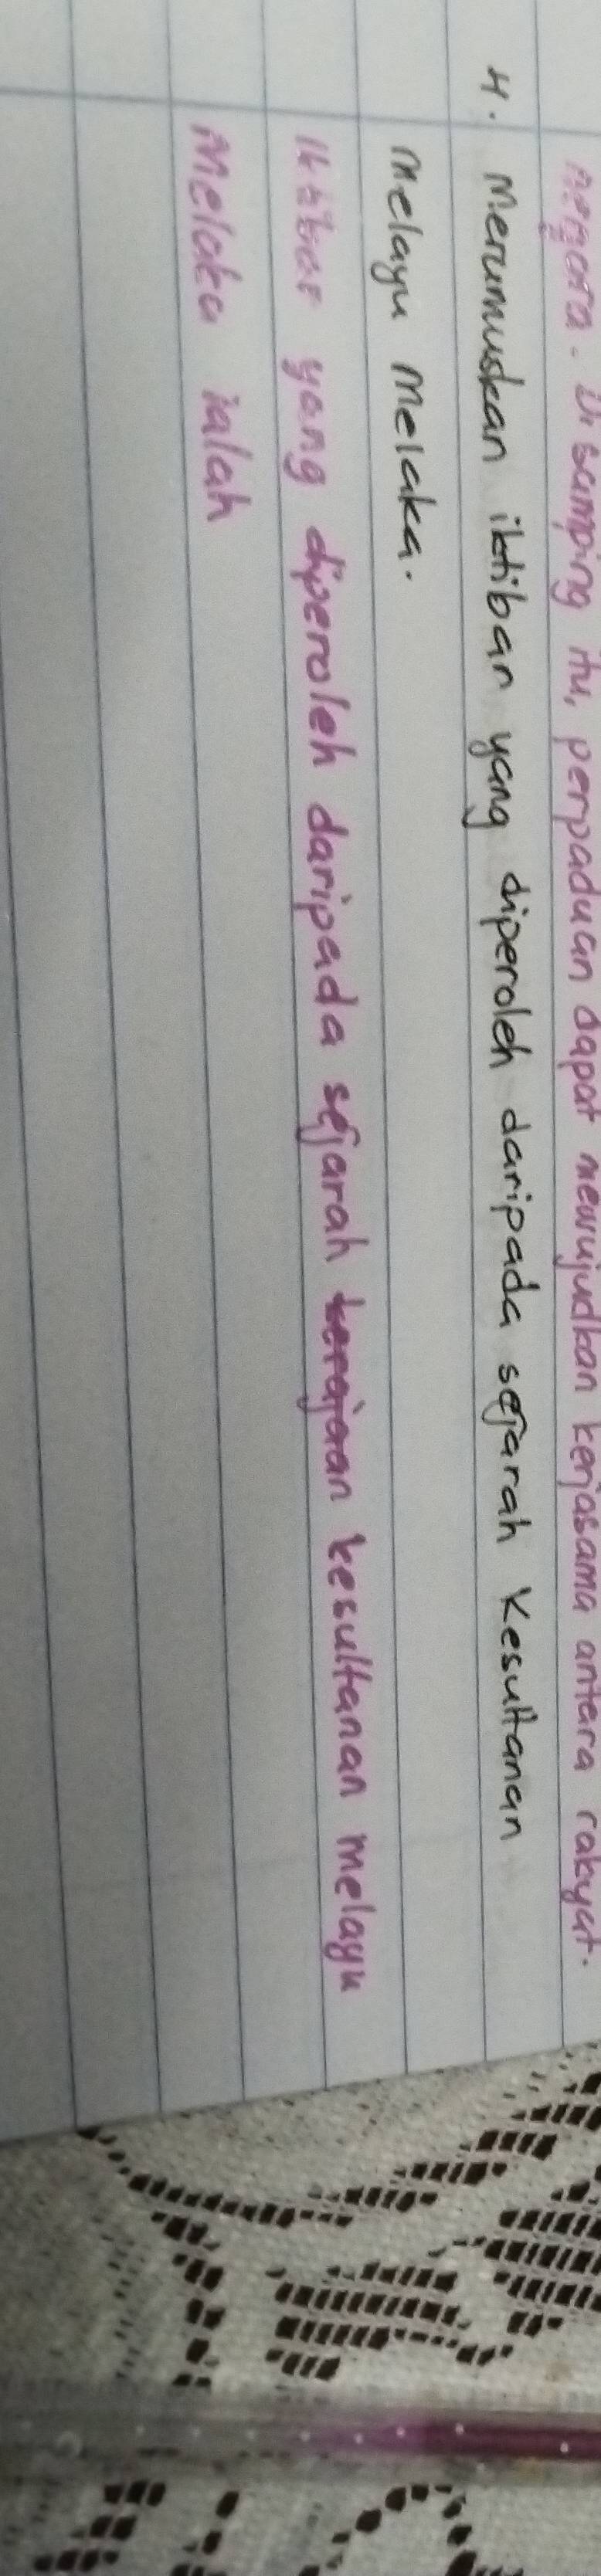 negara. Di samping itu, perpaduan dapat mewujudkan kerjasama antara rakyat.
4. Merumuskan iktiban yang diperoleh daripada sejarah Kesultanan
Melayu Melaka.
Iktibar yang diperoleh daripada sejarah kerajaan kesultanan melayu
Melaka ialah